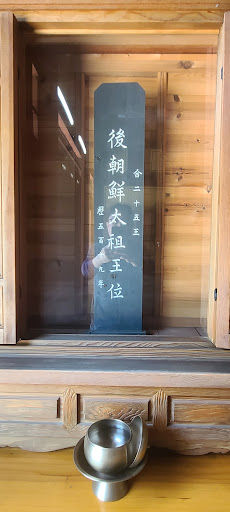 合二十五王
後朝鮮太祖王位
歷五百九年